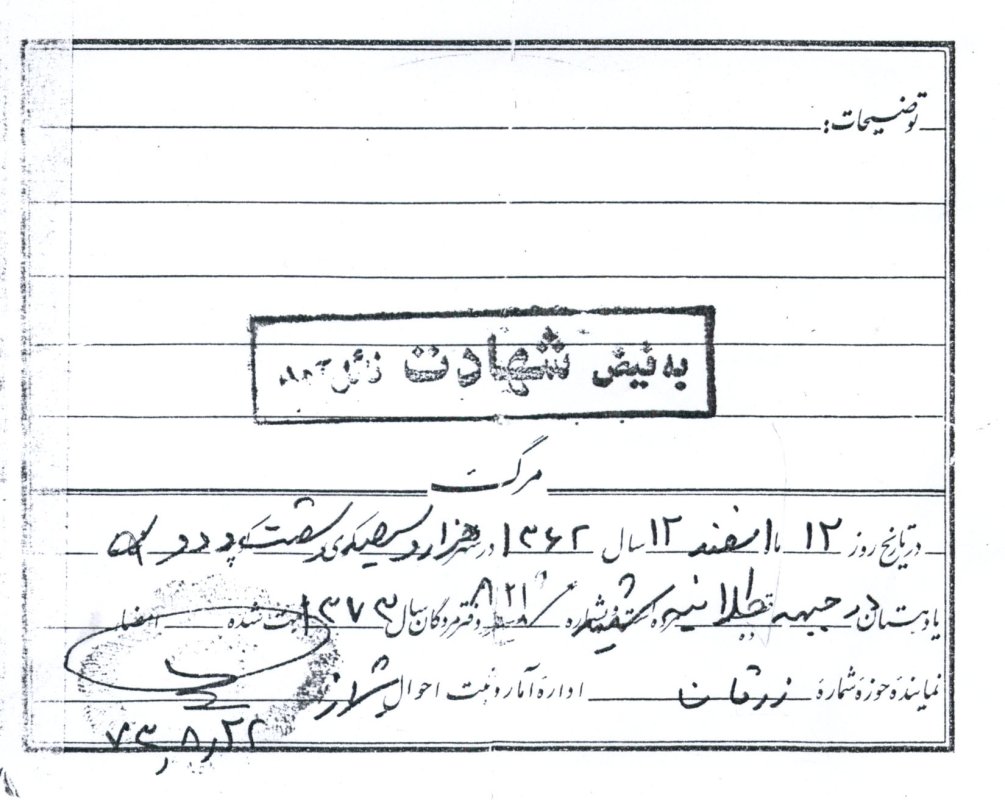 توضیحات:
به فیض شهادت نائل آمد
مرگ
در تاریخ روز ۱۲ ماه اسفند ۱۲ سال ۱۳۶۲ در شهر هزار و سیصد و شصت و دو
یا دهستان در جبهه طلائیه شهید شماره ۸۲۱ دفتر مردگان سال ۱۳۷۳ ثبت شده امضاء
نماینده حوزه شماره زرقان اداره آمار و ثبت احوال شیراز
۷۳٫۸٫۲۲